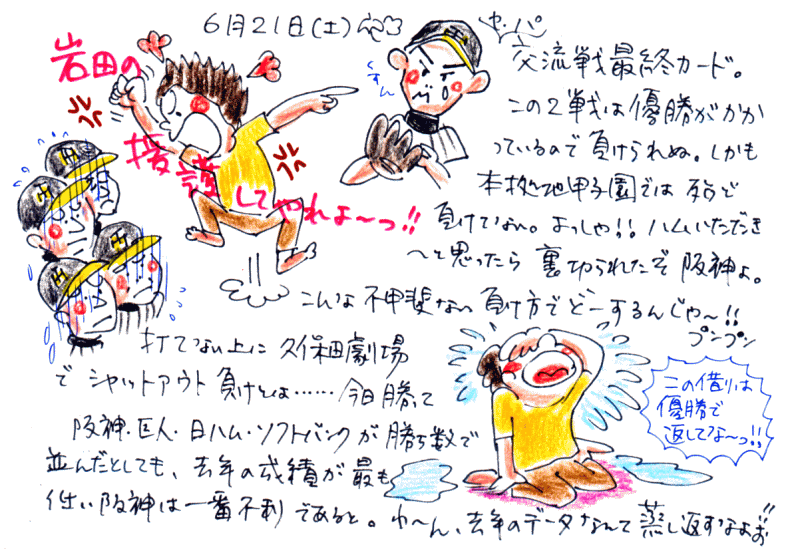 6月21日(土)
岩田の
援護
してやれよ〜っ!!
くすん
交流戦最終カード。
この2戦は優勝がかか
っているので負けられぬ。しかも
本拠地甲子園では
負けてない。よっしゃ!! ハムいただき
〜と思ったら裏切られたぞ阪神よ。
こんな不甲斐ない負け方でどーするんじゃ〜!!
プンプン
打てない上に久保田劇場
でシャットアウト負けとは……今日勝って
阪神・巨人・日ハム・ソフトバンクが勝ち数で
並んだとしても、去年の成績が最も
低い阪神は一番不利であると。わ〜ん、去年のデータなんて蒸し返すなよお!!
この借りは
優勝で
返してな〜っ!!